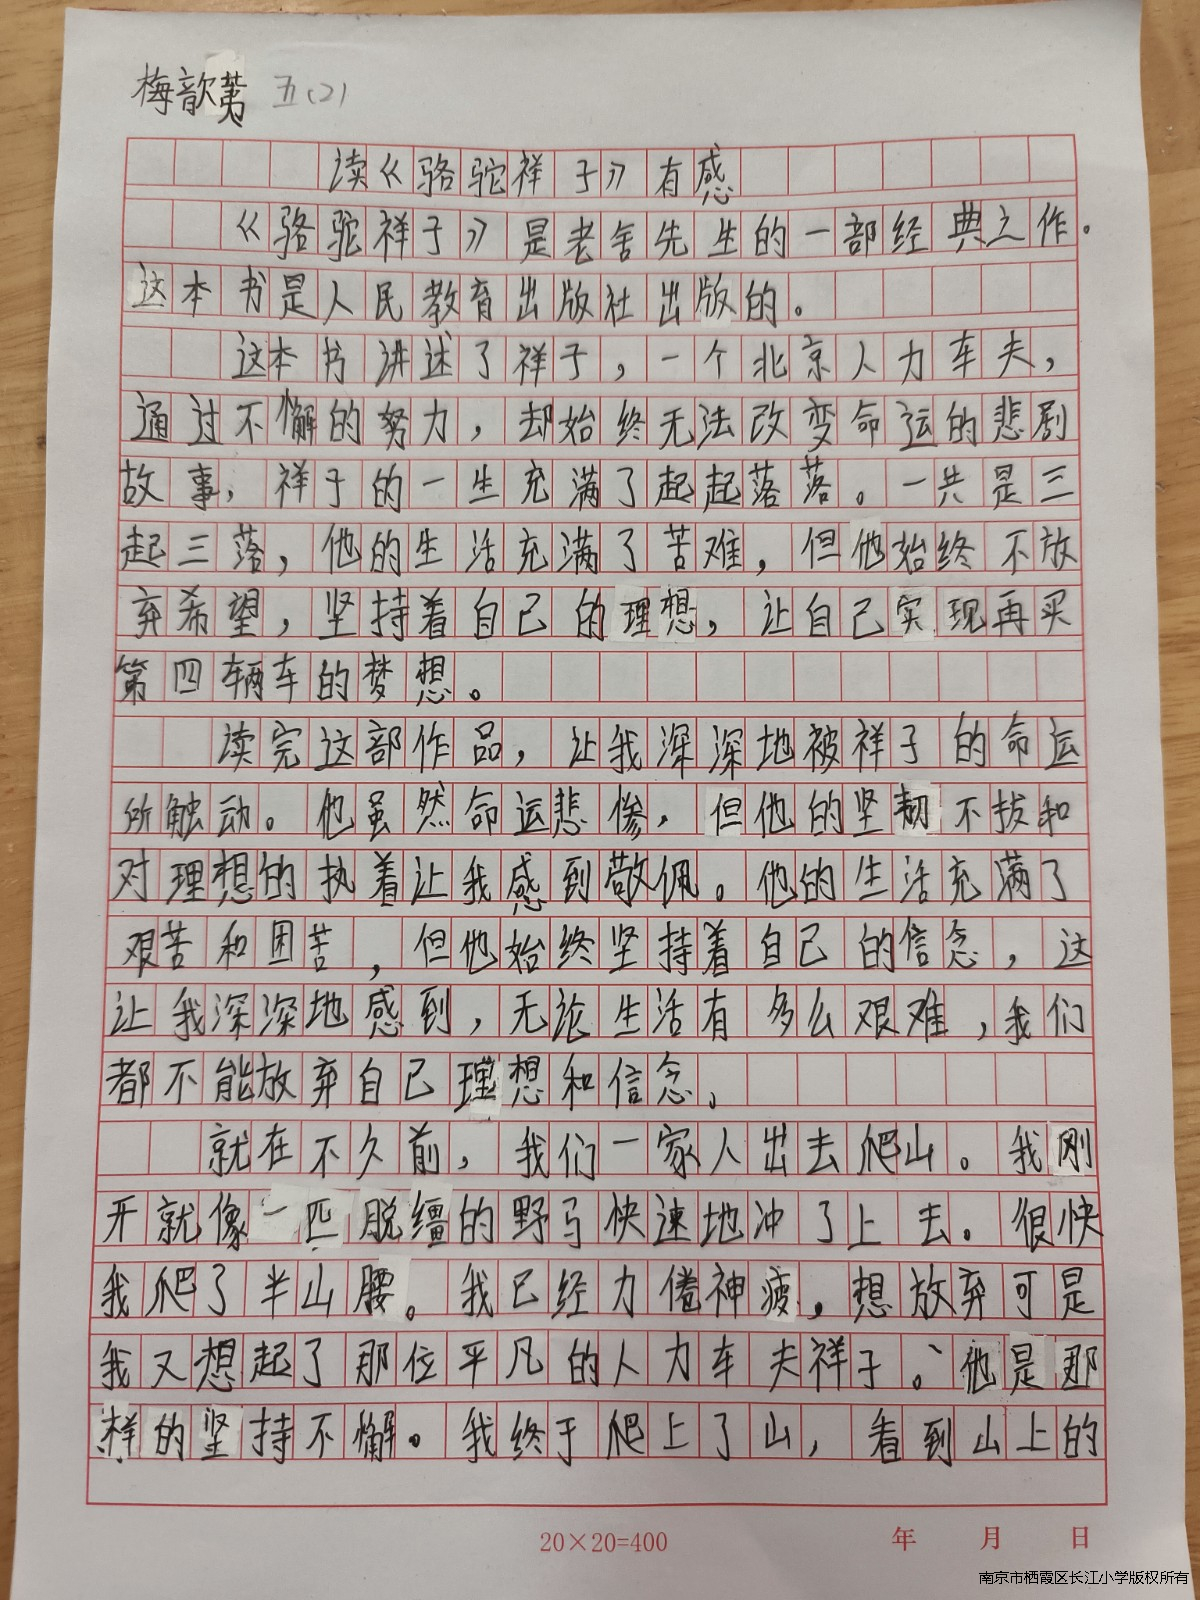 梅歆 五(2)
读《骆驼祥子》有感
《骆驼祥子》是老舍先生的一部经典之作。
这本书是人民教育出版社出版的。
这本书讲述了祥子，一个北京人力车夫，
通过不懈的努力，却始终无法改变命运的悲剧
故事，祥子的一生充满了起起落落。一共是三
起三落，他的生活充满了苦难，但他始终不放
弃希望，坚持着自己的理想，让自己实现再买
第四辆车的梦想。
读完这部作品，让我深深地被祥子的命运
所触动。他虽然命运悲惨，但他的坚韧不拔和
对理想的执着让我感到敬佩。他的生活充满了
艰苦和困苦，但他始终坚持着自己的信念，这
让我深深地感到，无论生活有多么艰难，我们
都不能放弃自己理想和信念、
就在不久前，我们一家人出去爬山。我刚
开就像一匹脱缰的野马快速地冲了上去。很快
我爬了半山腰。我已经力倦神疲，想放弃可是
我又想起了那位平凡的人力车夫祥子。、他是那
样的坚持不懈。我终于爬上了山，看到山上的
20×20=400 年 月 日
南京市栖霞区长江小学版权所有